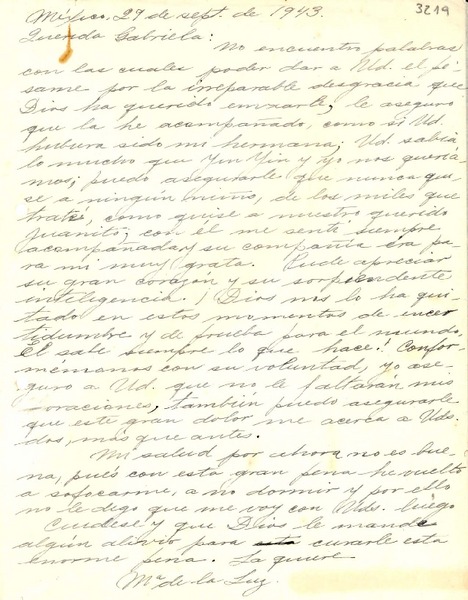 3219
México, 29 de sept. de 1943.
Querida Gabriela:
No encuentro palabras
con las cuales poder dar a Ud. el pé-
same por la irreparable desgracia que
Dios ha querido enviarle, le aseguro
que la he acompañado, como si Ud.
hubiera sido mi hermana; Ud. sabía
lo mucho que Yin Yin y yo nos quería-
mos; puedo asegurarle que nunca qui-
se a ningún niño, de los miles que
traté, como quise a nuestro querido
Juanito; con él me sentí siempre
acompañada y su compañía era pa-
ra mí muy grata. Pude apreciar
su gran corazón y su sorprendente
inteligencia. ¡Dios nos lo ha qui-
tado en estos momentos de incer
tidumbre y de prueba para el mundo,
El sabe siempre lo que hace! Confor-
mémonos con su voluntad, yo ase-
guro a Ud. que no le faltarán mis
oraciones, también puedo asegurarle
que este gran dolor me acerca a Uds.
dos, más que antes.
Mi salud por ahora no es bue-
na, pues con esta gran pena he vuelto
a sofocarme, a no dormir y por ello
no le digo que me voy con Uds. luego
Cuídese y que Dios le mande
algún alivio para curarle esta
enorme pena. La quiere
Ma. de la Luz.